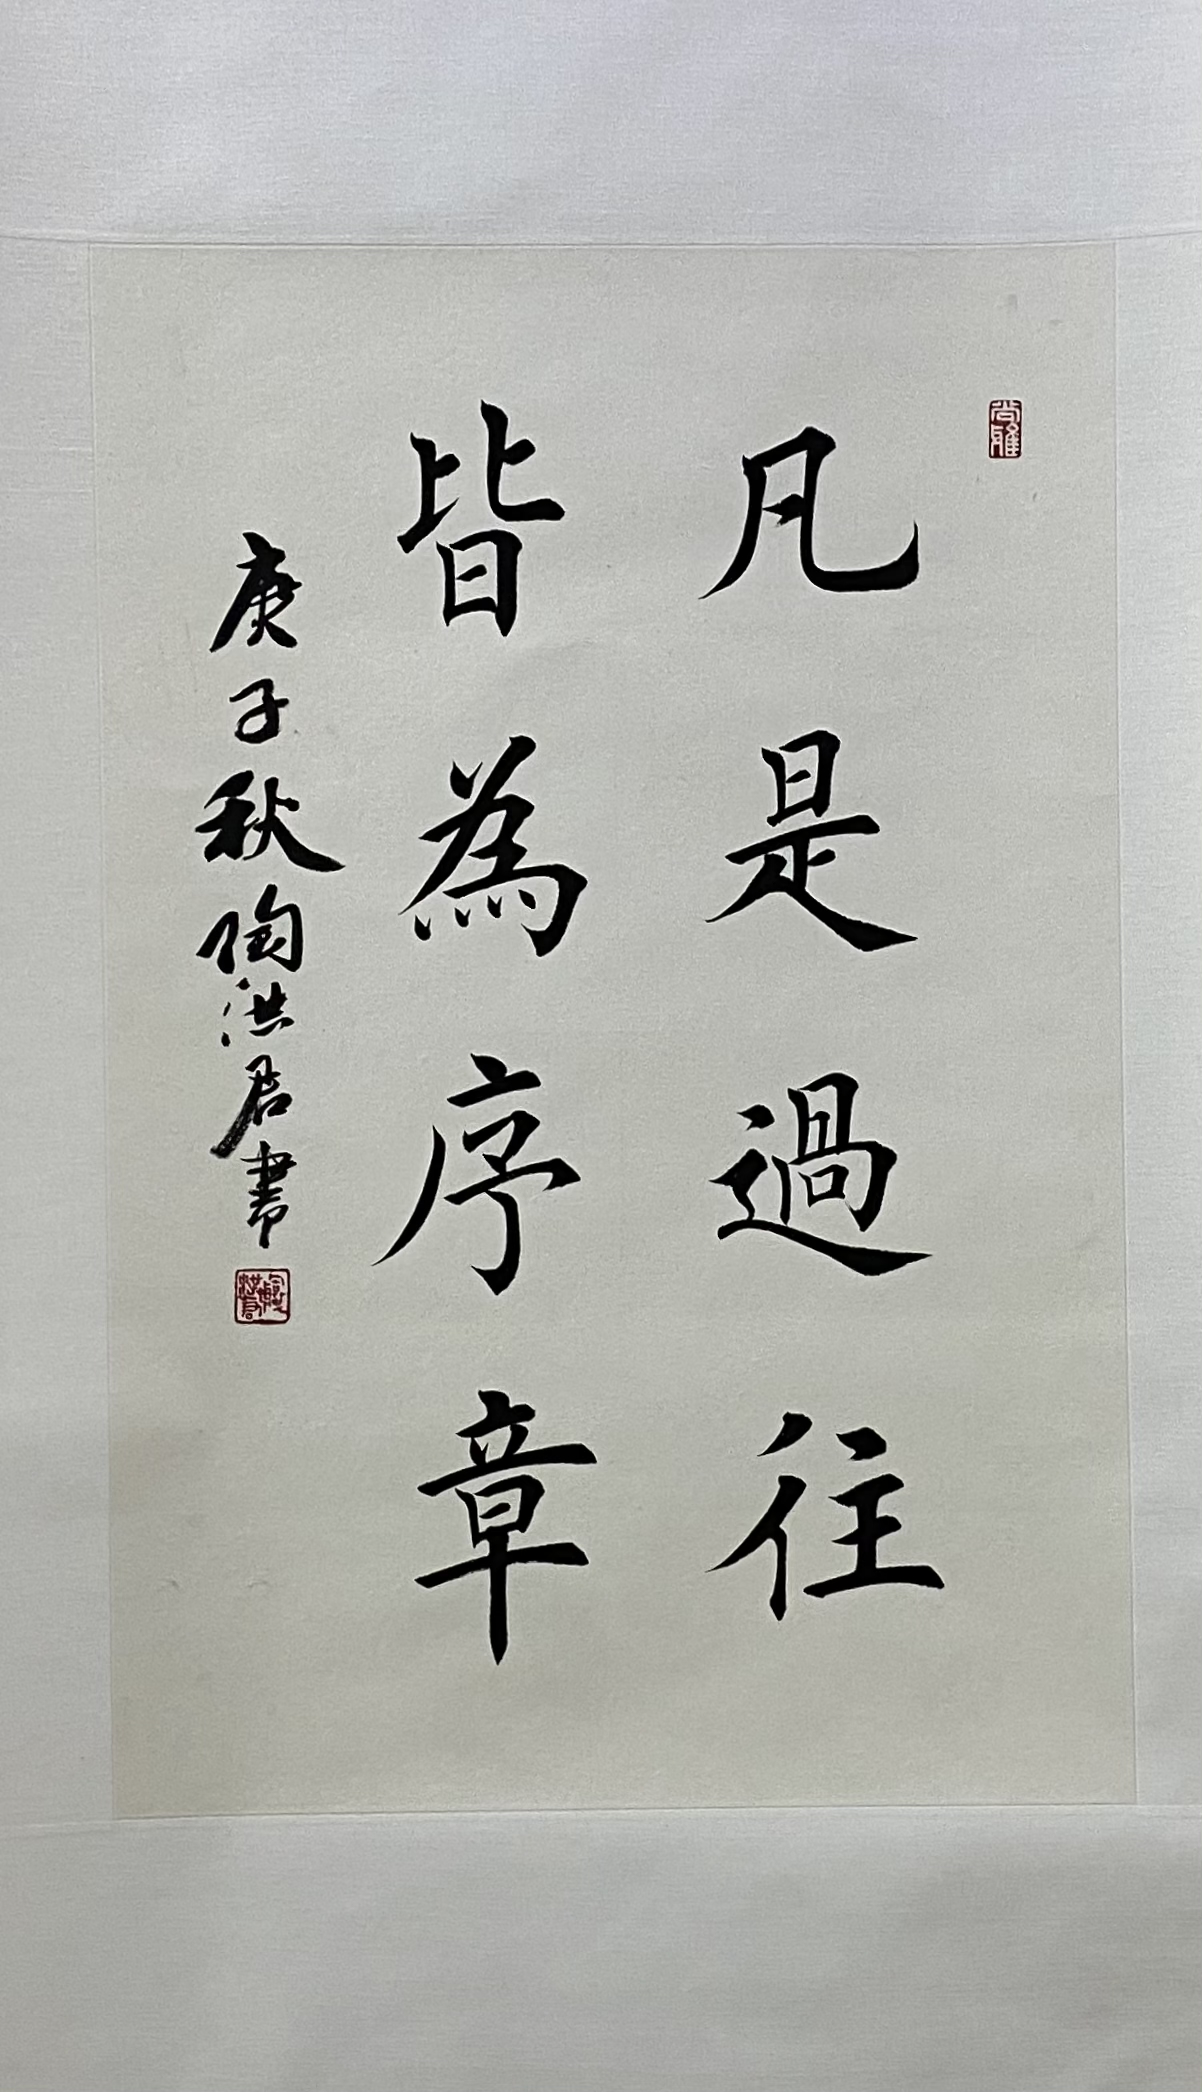 凡是過往
皆為序章
庚子秋陶洪君書
尚雅